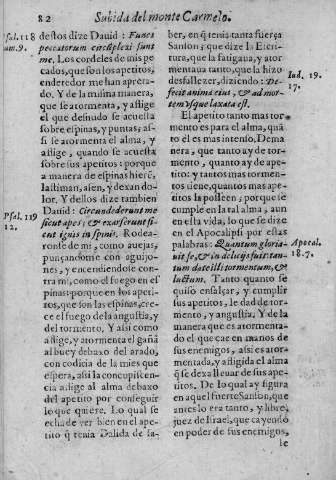 82 Subida del monte Carmelo.
Psal. 118
num. 9.
destos dize Dauid : Funes
peccatorum circũplexi sunt
me. Los cordeles de mis pe
cados, que son los apetitos,
enderedor me han apreta-
do. Y de la misma manera,
que se atormenta, y aflige
el que desnudo se acuesta
sobre espinas, y puntas; assi
se atormenta el alma, y
aflige, quando se acuesta
sobre sus apetitos : porque
a manera de espinas hierẽ,
lastiman, asen, y dexan do-
lor. Y dellos dize tambien
Psal. 119
12.
Dauid : Circundederunt me
sicut apes; & exarserunt si-
cut ignis in spinis. Rodea-
ronse de mi, como auejas,
punçandome con aguijo-
nes, y encendiendose con-
tra mi, como el fuego en es-
pinas: porque en los apeti-
tos, que son las espinas, cre-
ce el fuego de la angustia, y
del tormento. Y assi como
aflige, y atormenta el gañã
al buey debaxo del arado,
con codicia de la mies que
espera, assi la concupiscen-
cia aflige al alma debaxo
del apetito por conseguir
lo que quiere. Lo qual se
echa de ver bien en el ape-
tito q̃ tenia Dalida de sa-
ber, en q̃ tenia tanta fuerça
Sanson; que dize la Escri-
tura, que la fatigaua, y ator
mentaua tanto, que la hizo
desfallecer, diziendo : De-
Iud. 19.
17.
fecit anima eius, & ad mor-
tem vsque laxata est.
El apetito tanto mas tor
mento es para el alma, quã
to el es mas intenso. Dema
nera, que tanto ay de tor-
mento, quanto ay de apeti-
to: y tantos mas tormen-
tos tiene, quantos mas ape-
titos la posseen; porque se
cumple en la tal alma, aun
en esta vida, lo que se dize
en el Apocalipsi por estas
palabras: Quantum gloria-
Apocal.
18. 7.
uit se, & in delicijs fuit: tan-
tum date illi tormentum, &
luctum. Tanto quanto se
quiso ensalçar, y cumplir
sus apetitos, le dad de tor-
mento, y angustia. Y de la
manera que es atormenta-
do el que cae en manos de
sus enemigos, assi es ator-
mentada, y afligida el alma
q̃ se dexa lleuar de sus ape-
titos. De lo qual ay figura
en aquel fuerte Sanson, que
antes lo era tanto, y libre,
juez de Israel, que cayendo
en poder de sus enemigos,
le